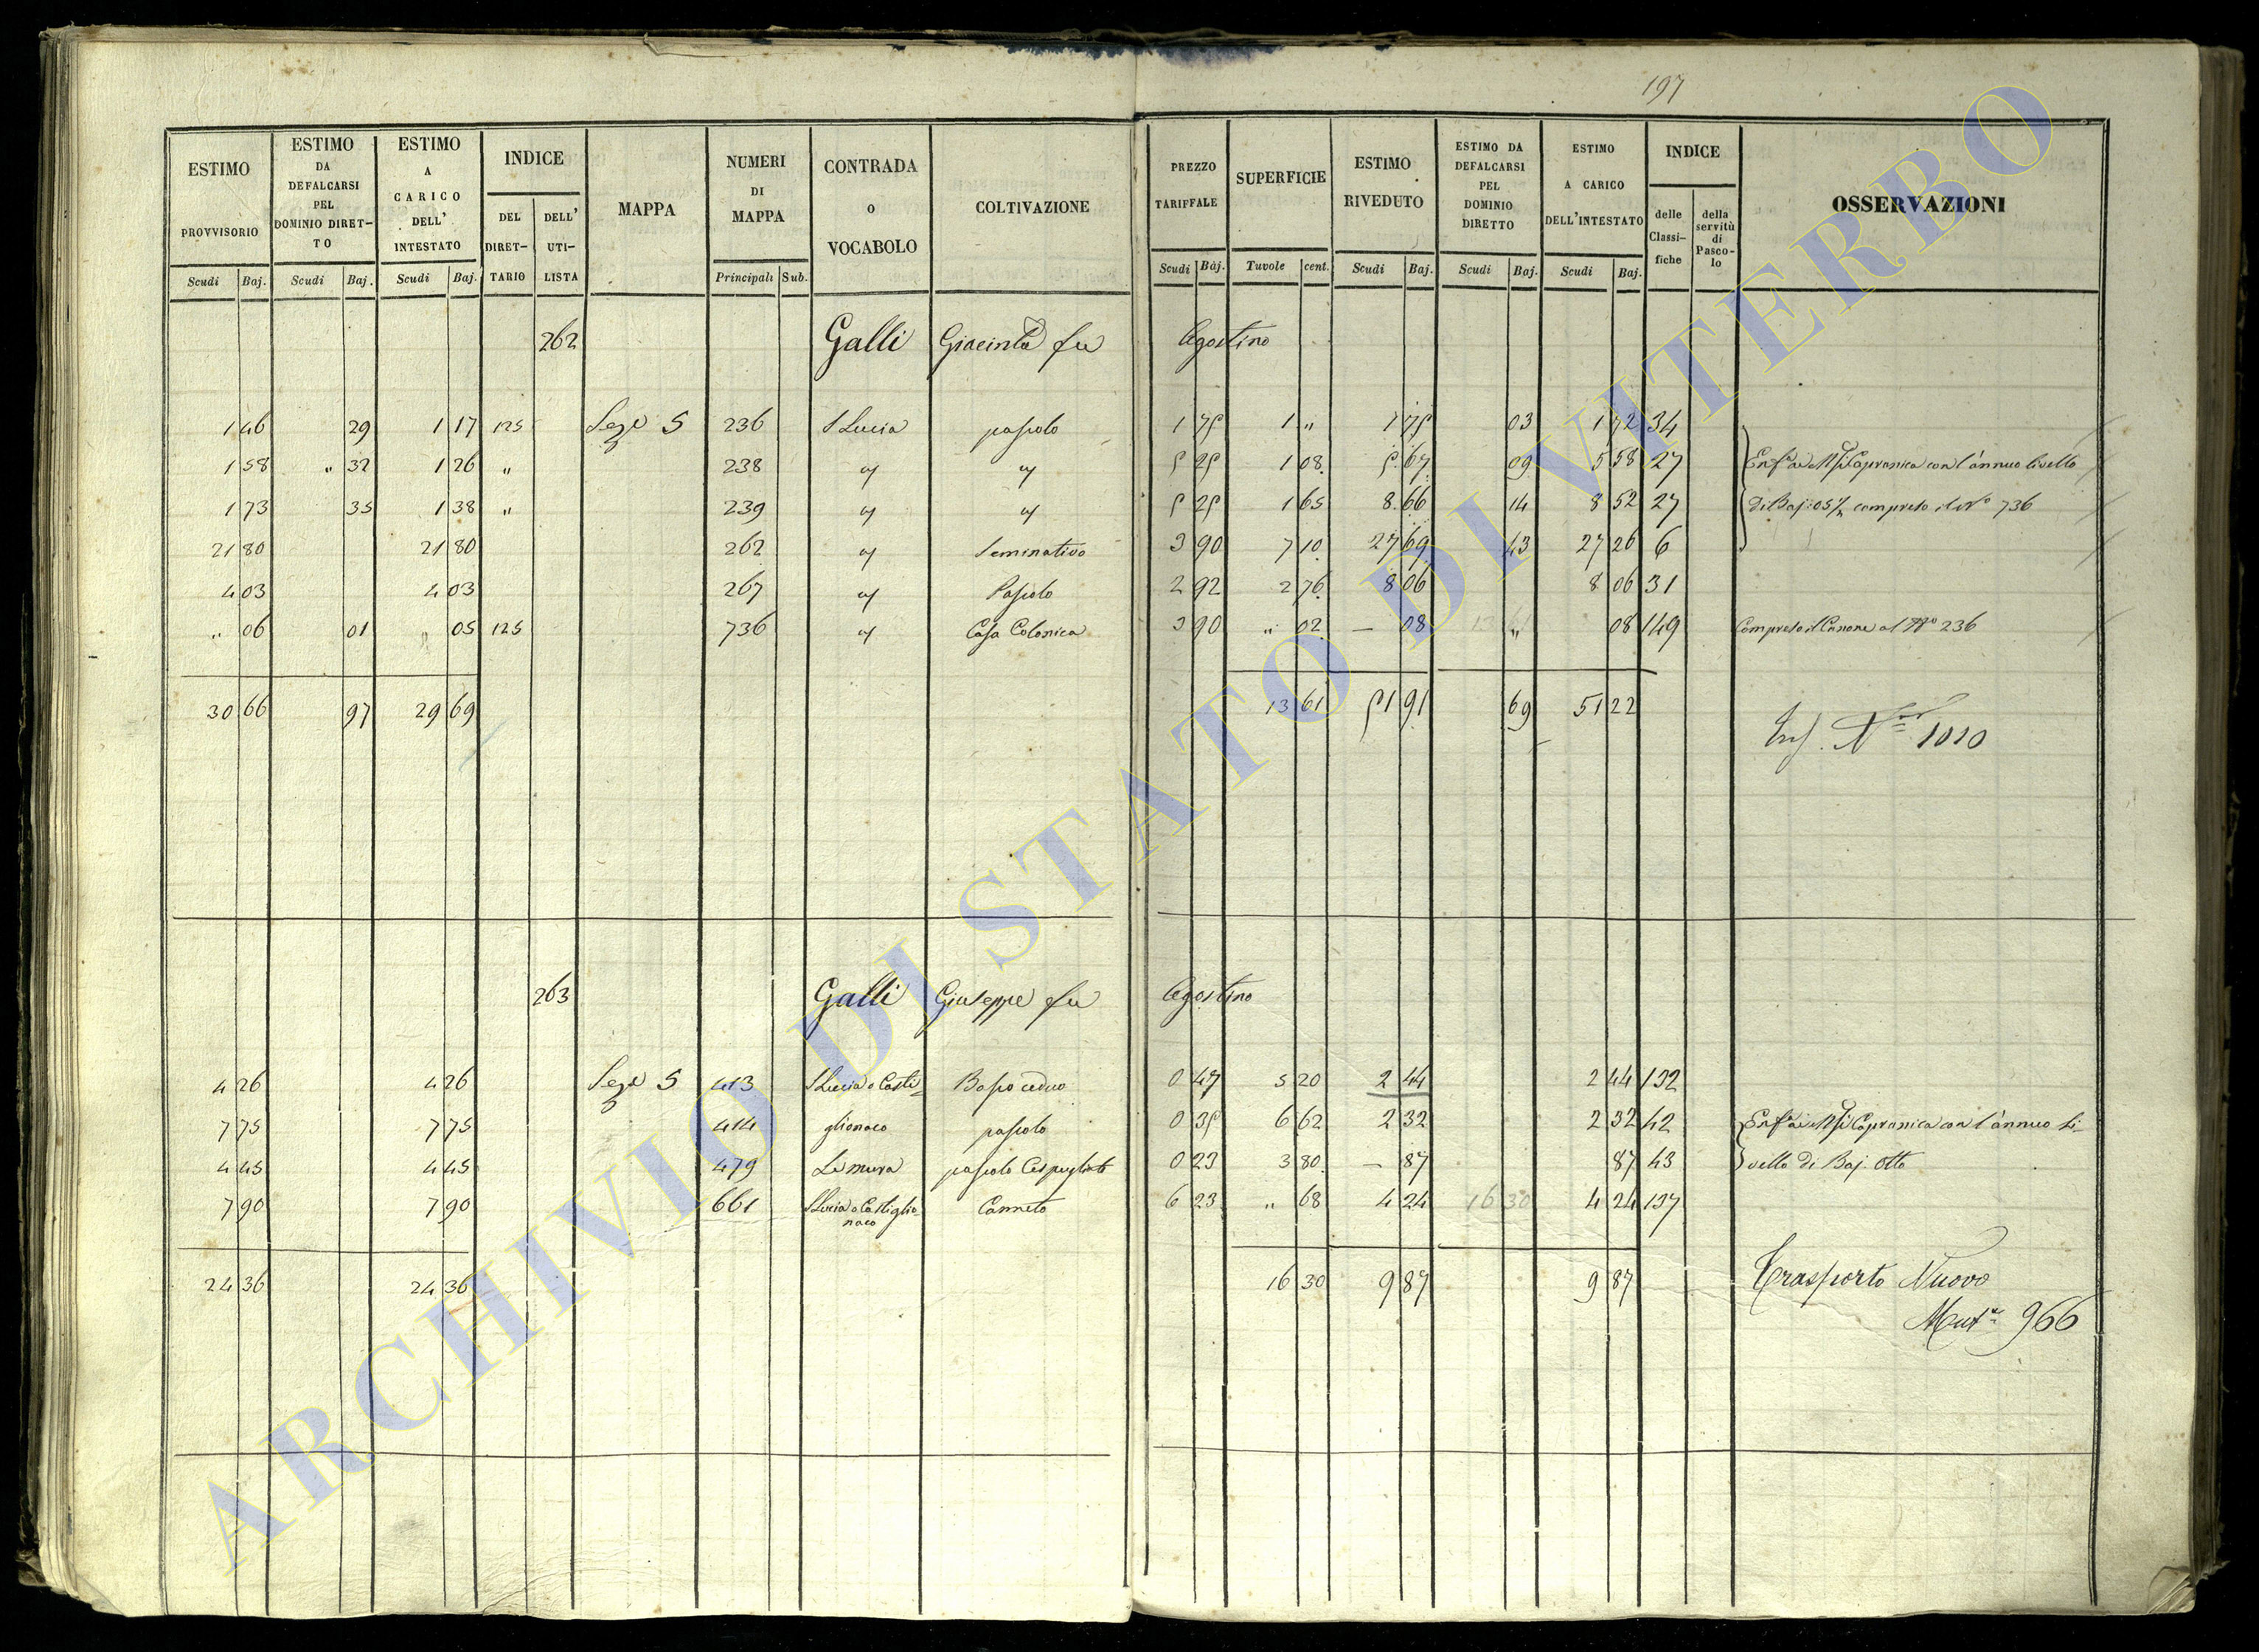 197
ESTIMO PROVVISORIO | ESTIMO DA DEFALCARSI PEL DOMINIO DIRET-TO | ESTIMO A CARICO DELL' INTESTATO | INDICE DEL DIRET-TARIO | DELL' UTI-LISTA | MAPPA | NUMERI DI MAPPA | CONTRADA O VOCABOLO | COLTIVAZIONE | PREZZO TARIFFALE | SUPERFICIE | ESTIMO RIVEDUTO | ESTIMO DA DEFALCARSI PEL DOMINIO DIRETTO | ESTIMO A CARICO DELL'INTESTATO | INDICE delle Classi-fiche | della servitù di Pasco-lo | OSSERVAZIONI
Scudi | Baj. | Scudi | Baj. | Scudi | Baj. | Principali | Sub. | Scudi | Baj. | Tavole | cent. | Scudi | Baj. | Scudi | Baj. | Scudi | Baj.
262 Galli Giacinta fu Agostino
1 46 | 29 | 1 17 | 125 | Seze 5 | 236 | S Lucia | pascolo | 1 75 | 1 " | 1 75 | 03 | 1 72 | 34
1 58 | " 32 | 1 26 | " | 238 | " | " | 5 25 | 1 08 | 5 67 | 09 | 5 58 | 27 | Capranica con l'annuo livello
1 73 | 35 | 1 38 | " | 239 | " | " | 5 25 | 1 65 | 8 66 | 14 | 8 52 | 27 | di Baj: 05 1/2 compreso il N° 736
21 80 | 21 80 | 262 | " | Seminativo | 3 90 | 7 10 | 27 69 | 43 | 27 26 | 6
4 03 | 4 03 | 267 | " | Pascolo | 2 92 | 2 76 | 8 06 | 8 06 | 31
" 06 | 01 | " 05 | 125 | 736 | " | Casa Colonica | 3 90 | " 02 | — 08 | " | 08 | 149 | Compreso il Canone al N° 236
30 66 | 97 | 29 69 | 13 61 | 51 91 | 69 | 51 22
1010
263 Galli Giuseppe fu Agostino
4 26 | 4 26 | Seze 5 | 413 | S Lucia o Casti= | Bosco ceduo | 0 47 | 5 20 | 2 44 | 2 44 | 132
7 75 | 7 75 | 414 | glionaco | pascolo | 0 35 | 6 62 | 2 32 | 2 32 | 42 | Capranica con l'annuo li-
4 45 | 4 45 | 479 | Le mura | pascolo Cespugliato | 0 23 | 3 80 | — 87 | 87 | 43 | vello di Baj. Otto
7 90 | 7 90 | 661 | S Lucia o Castiglio-naco | Canneto | 6 23 | " 68 | 4 24 | 16 30 | 4 24 | 137
24 36 | 24 36 | 16 30 | 9 87 | 9 87 | Trasporto Nuovo
966
ARCHIVIO DI STATO DI VITERBO